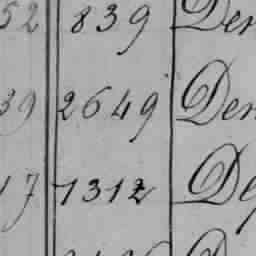 52 839 Der
39 2649 Der
17 1312 De